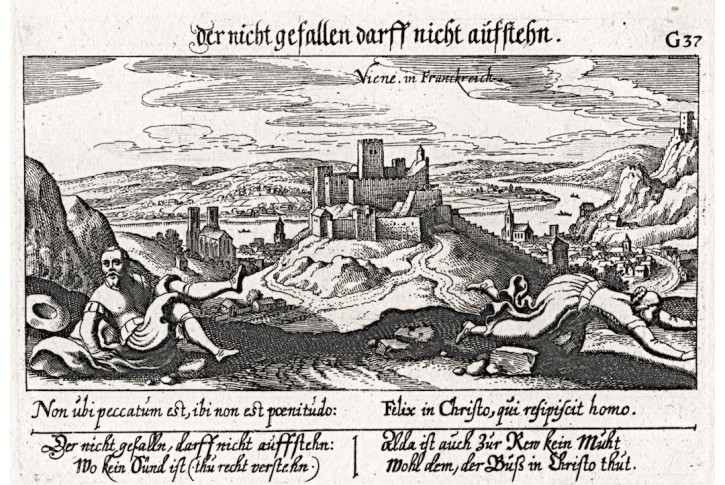 der nicht gefallen darff nicht aufstehn.
G37
Viene. in Franckreich.
Non ubi peccatum est, ibi non est pœnitudo:
Felix in Christo, qui resipiscit homo.
Der nicht gefalln, darff nicht auffstehn:
Wo kein Sünd ist (thu recht verstehn.)
Alda ist auch Zur Rew kein Muht
Wohl dem, der Büß in Christo thut.